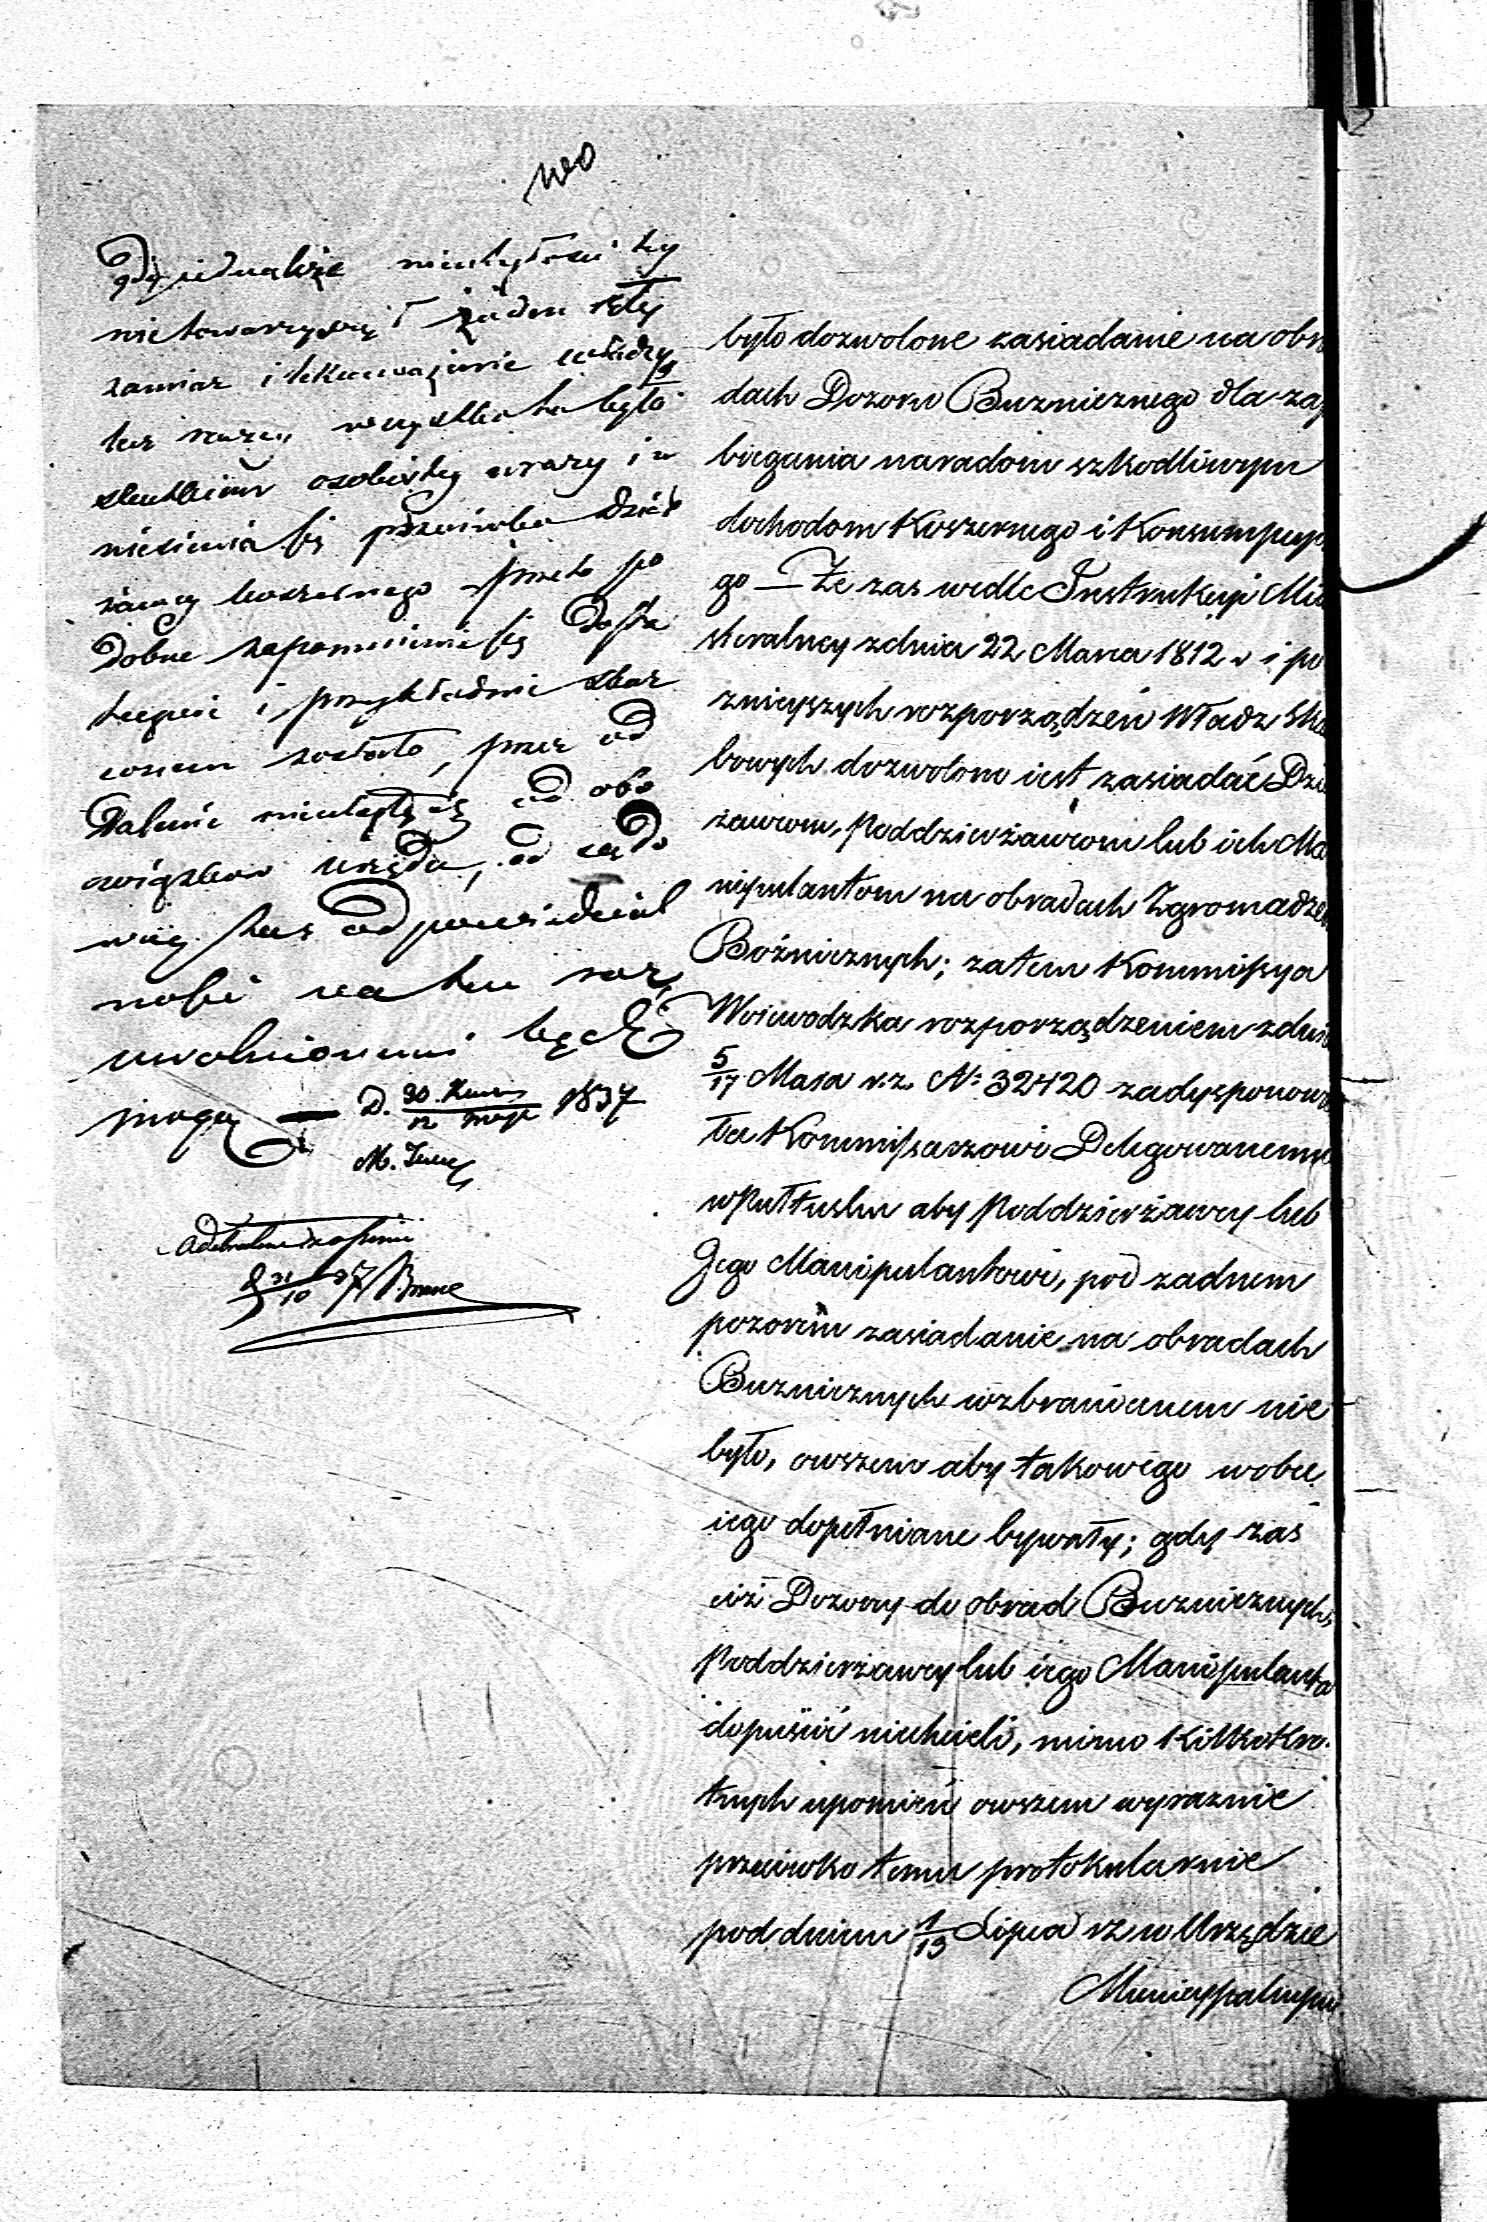 gdy jednakże
nietowarzyszył żaden
zamiar i lekceważenie władzy
lecz raczej wszystko to było
skutkiem osobistej urazy i u
niesienia się przeciwko Dzier
żawcy koszernego przeto po
dobne zapomnienie się dosta
tecznie i przykładnie skar
conem zostało, przez od
dalenie od obo
wiązków urzędu, od sądo
wej zaś odpowiedzial
ności na ten raz,
uwolnionemi będą
mogą — D. 30/12 1837
było dozwolone zasiadanie na obra
dach Dozoru Buzniczego dla zap
biegania naradom szkodliwym
dochodom Koszernego i Konsumpcyj
go — Że zas wedle Instrukcyi Mini
steralney z dnia 22 Marca 1812 r i po
znieyszych rozporządzeń Władz Skar
bowych dozwolono iest zasiadać Dzie
żawcom, Poddzierżawcom lub ich Ma
nipulantom na obradach Zgromadzeń
Bożnicznych; zatem Kommissya
Woiewodzka rozporządzeniem z dnia
5/17 Maia r.z. N: 32420 zadysponowa
ła Kommissarzowi Delegowanemu
w Pułtusku aby Poddzierżawcy lub
Jego Manipulantowi, pod zadnem
pozorem zasiadanie na obradach
Buznicznych wzbranianem nie
było, owszem aby takowego wobec
iego dopełniane bywały; gdy zas
ciż Dozorcy do obrad Buznicznych,
Poddzierżawcy lub iego Manipulanta
dopuścić niechcieli, mimo kilkokro.
tnych upomień owszem wyraznie
przeciwko temu protokularnie
pod dniem 1/13 Lipca rz w Urzędzie
Municypalnym